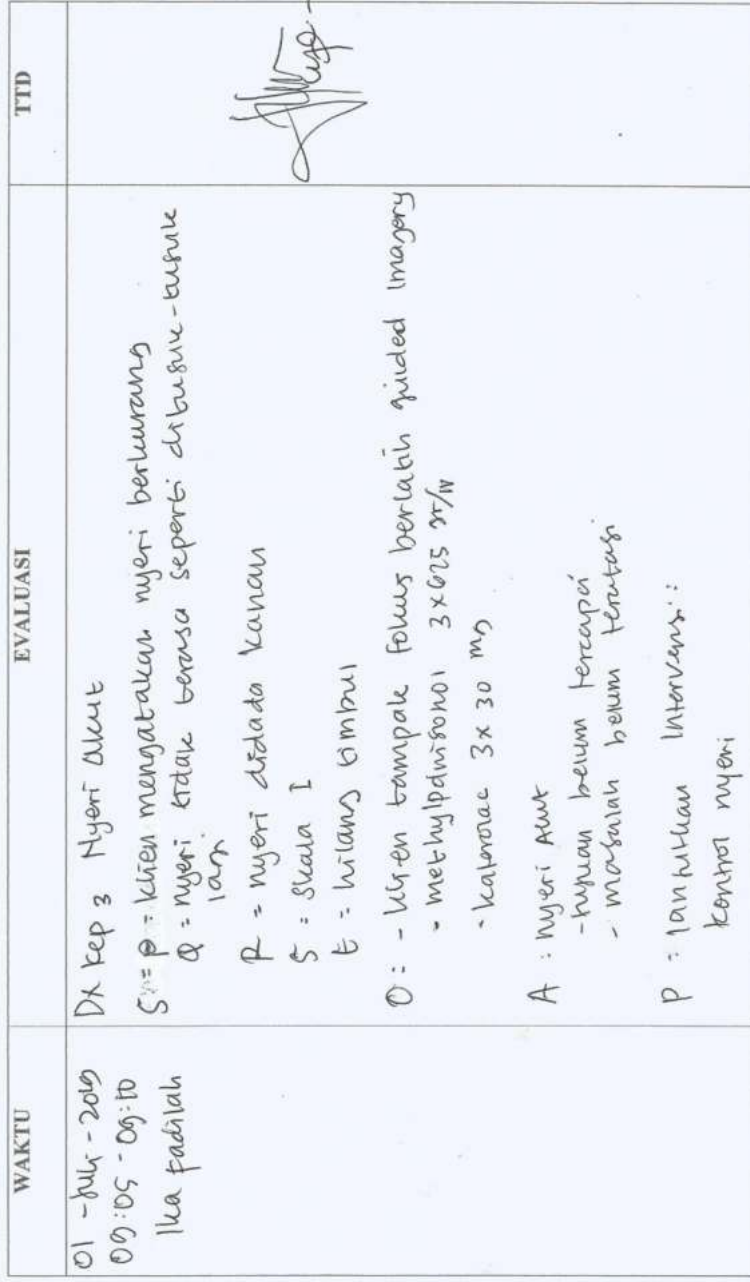 WAKTU
EVALUASI
TTD
01 - Juli - 2019
09:05 - 09:10
Ika Fadilah
Dx Kep 3 Nyeri Akut
S = P = Klien mengatakan nyeri berkurang
Q = nyeri tidak terasa seperti ditusuk-tusuk
lagi
R = nyeri didada kanan
S = Skala I
t = hilang timbul
O : - Klien tampak fokus berlatih guided imagery
- methylpdnisonol 3x625 gr/IV
- katerolac 3x 30 mg
A : nyeri Akut
- tujuan belum tercapai
- masalah belum teratasi
P : lanjutkan Intervensi :
kontrol nyeri